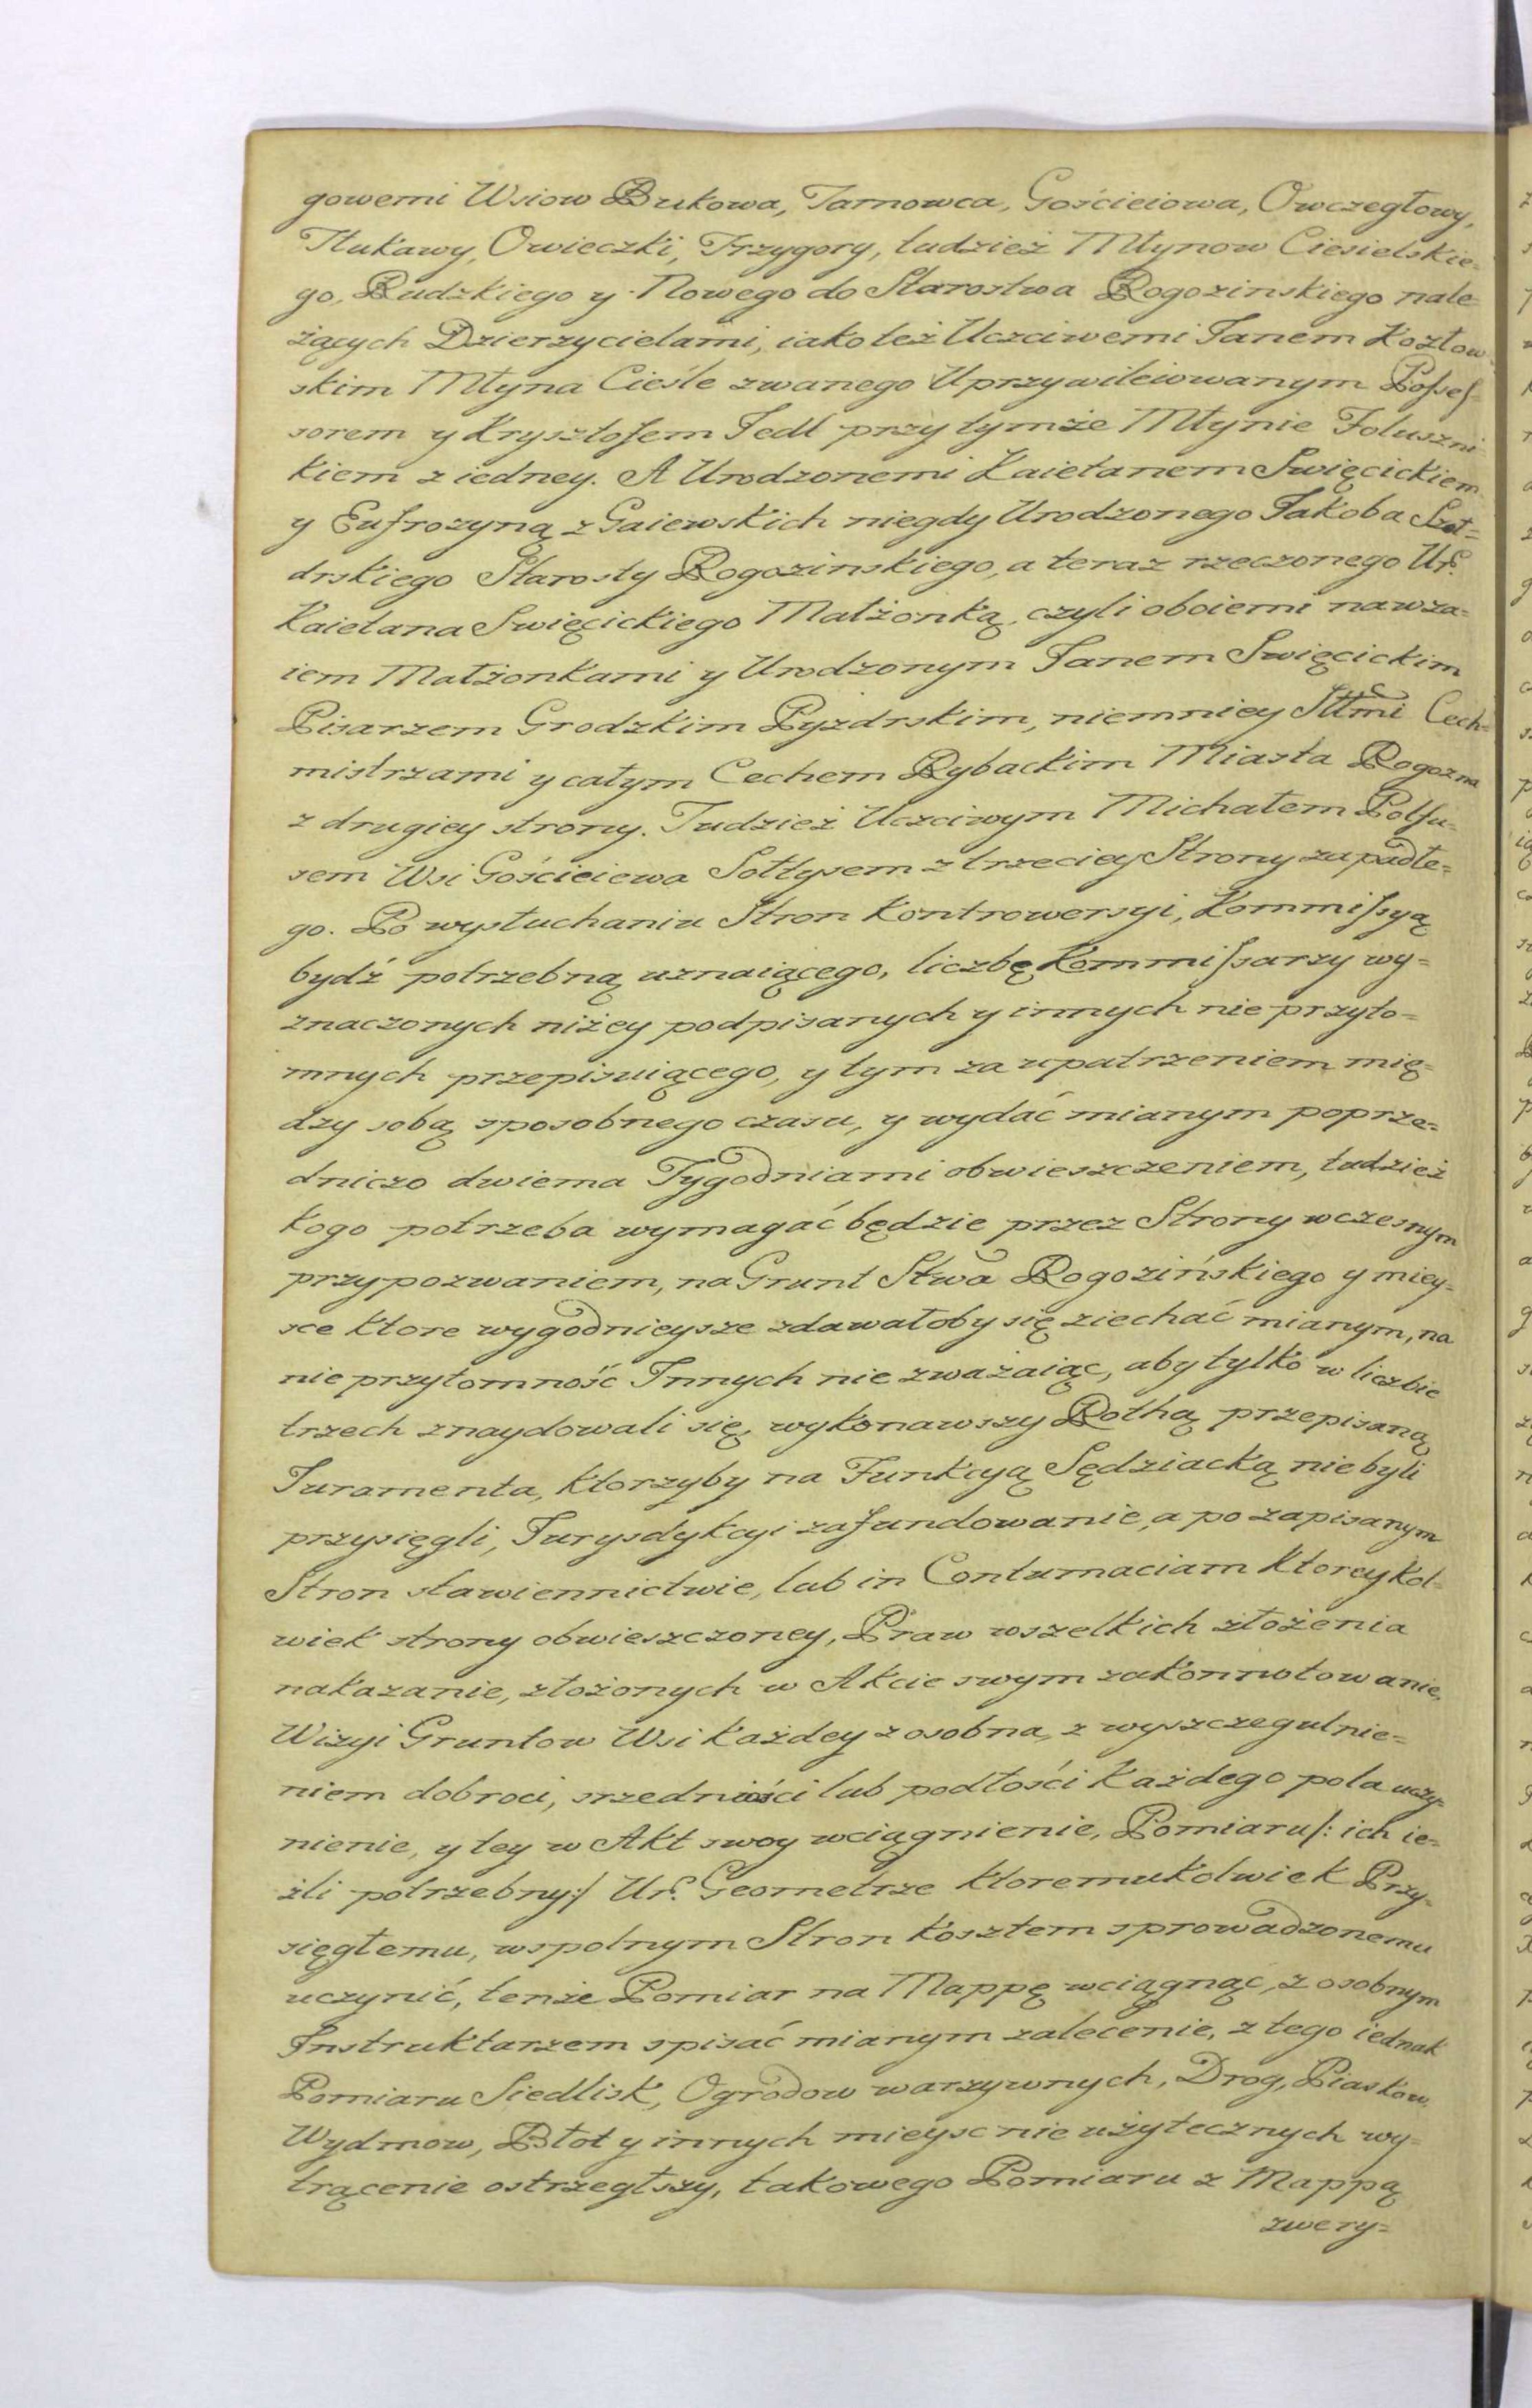 gowemi Wsiow Bukowa, Tarnowca, Gościeiowa, Owczegłowy,
Tłukawy, Owieczki, Trzygory, tudzież Młynow Ciesielskie=
go, Rudzkiego y Nowego do Starostwa Rogozinskiego nale=
żących Dzierzycielami, iako też Uczciwemi Janem Kozłow
skim Młyna Cieśle zwanego Uprzywileiowanym Posses=
sorem y Krysztofem Jedl przy tymże Młynie Foluszni
kiem z iedney. A Urodzonemi Kaietanem Swięcickiem
y Eufrozyną z Gaiewskich niegdy Urodzonego Jakoba Szoł=
drskiego Starosty Rogozinskiego, a teraz rzeczonego Ur.
Kaietana Swięcickiego Małżonką, czyli oboiemi nawza=
iem Małżonkami y Urodzonym Janem Swięcickim
Pisarzem Grodzkim Pyzdrskim, niemniey Sttmi Cech=
mistrzami y całym Cechem Rybackim Miasta Rogozna
z drugiey strony. Tudzież Uczciwym Michałem Polfu=
sem Wsi Gościeiewa Sołtysem z trzeciey Strony zapadłe=
go. Po wysłuchaniu Stron kontrowersyi, Kommissyą
bydź potrzebną uznaiącego, liczbę Kommissarzy wy=
znaczonych niżey podpisanych y innych nie przyto=
mnych przepisuiącego, y tym za upatrzeniem mię=
dzy sobą sposobnego czasu, y wydać mianym poprze=
dniczo dwiema Tygodniami obwieszczeniem, tudzież
kogo potrzeba wymagać będzie przez Strony wczesnym
przypozwaniem, na Grunt Stwa Rogozińskiego y miey=
sce ktore wygodnieysze zdawałoby się ziechać mianym, na
nie przytomność Innych nie zważaiąc, aby tylko w liczbie
trzech znaydowali się, wykonawszy Rothą przepisaną
Juramenta, ktorzyby na Funkcyą Sędziacką nie byli
przysięgli, Jurysdykcyi zafundowanie, a po zapisanym
Stron stawiennictwie, lub in Contumaciam ktoreykol=
wiek strony obwieszczoney, Praw wszelkich złożenia
nakazanie, złożonych w Akcie swym zakonnotowanie,
Wizyi Gruntow Wsi każdey z osobna, z wyszczegulnie=
niem dobroci, srzedniości lub podłości każdego pola uczy=
nienie, y tey w Akt swoy wciągnienie, Pomiaru /: ich ie=
żli potrzebny :/ Ur. Geometrze ktoremukolwiek Przy=
sięgłemu, wspolnym Stron kosztem sprowadzonemu
uczynić, tenże Pomiar na Mappę wciągnąć, z osobnym
Instruktarzem spisać mianym zalecenie, z tego iednak
Pomiaru Siedlisk, Ogrodow warzywnych, Drog, Piaskow,
Wydmow, Błot y innych mieysc nie użytecznych wy=
trącenie ostrzegłszy, takowego Pomiaru z Mappą
zwery=